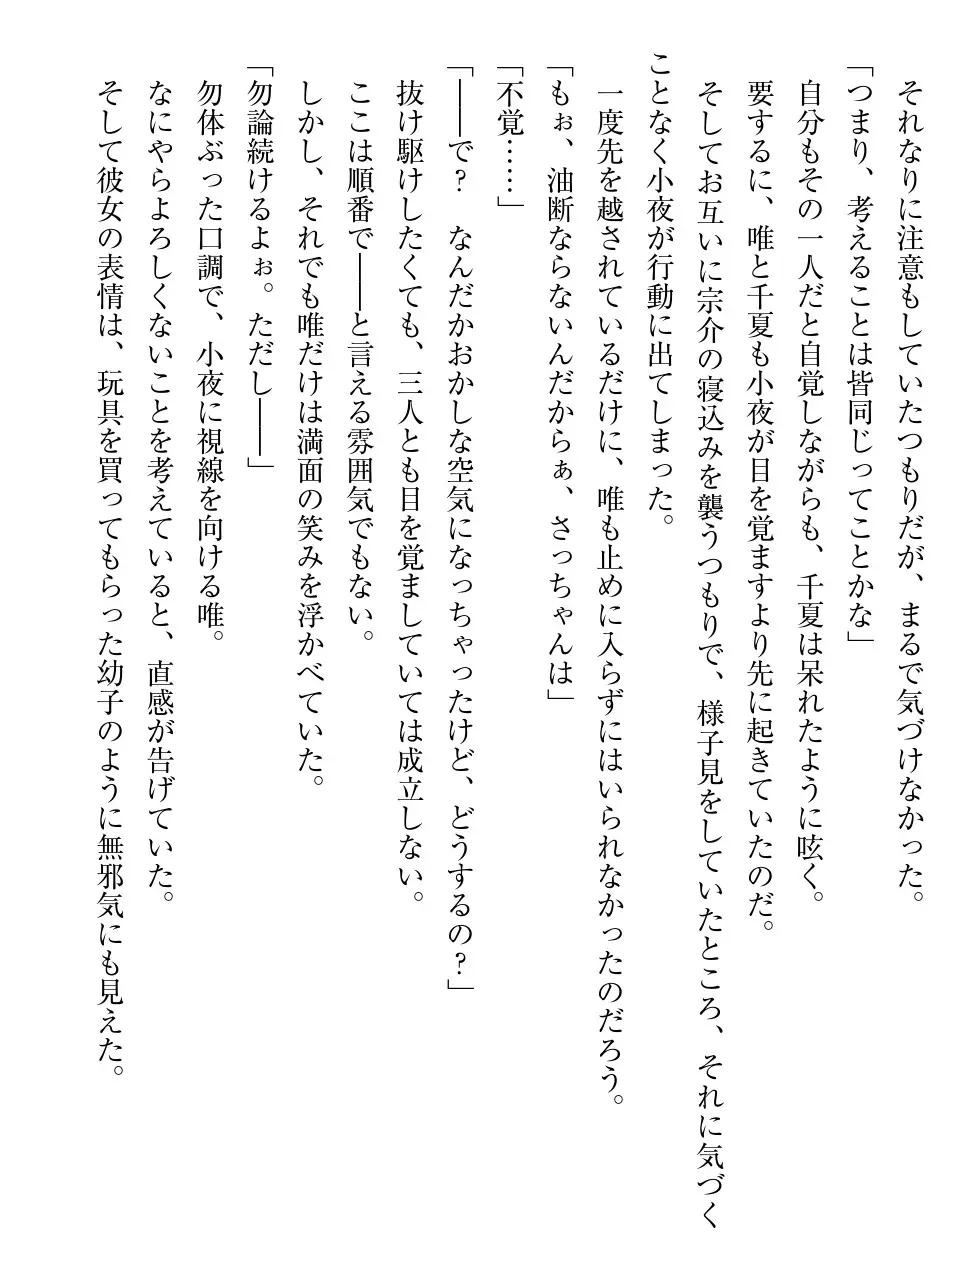 それなりに注意もしていたつもりだが、まるで気づけなかった。
「つまり、考えることは皆同じってことかな」
自分もその一人だと自覚しながらも、千夏は呆れたように呟く。
要するに、唯と千夏も小夜が目を覚ますより先に起きていたのだ。
そしてお互いに宗介の寝込みを襲うつもりで、様子見をしていたところ、それに気づく
ことなく小夜が行動に出てしまった。
一度先を越されているだけに、唯も止めに入らずにはいられなかったのだろう。
「もぉ、油断ならないんだからぁ、さっちゃんは」
「不覚……」
「――で?　なんだかおかしな空気になっちゃったけど、どうするの?」
抜け駆けしたくても、三人とも目を覚ましていては成立しない。
ここは順番で――と言える雰囲気でもない。
しかし、それでも唯だけは満面の笑みを浮かべていた。
「勿論続けるよぉ。ただし――」
勿体ぶった口調で、小夜に視線を向ける唯。
なにやらよろしくないことを考えていると、直感が告げていた。
そして彼女の表情は、玩具を買ってもらった幼子のように無邪気にも見えた。